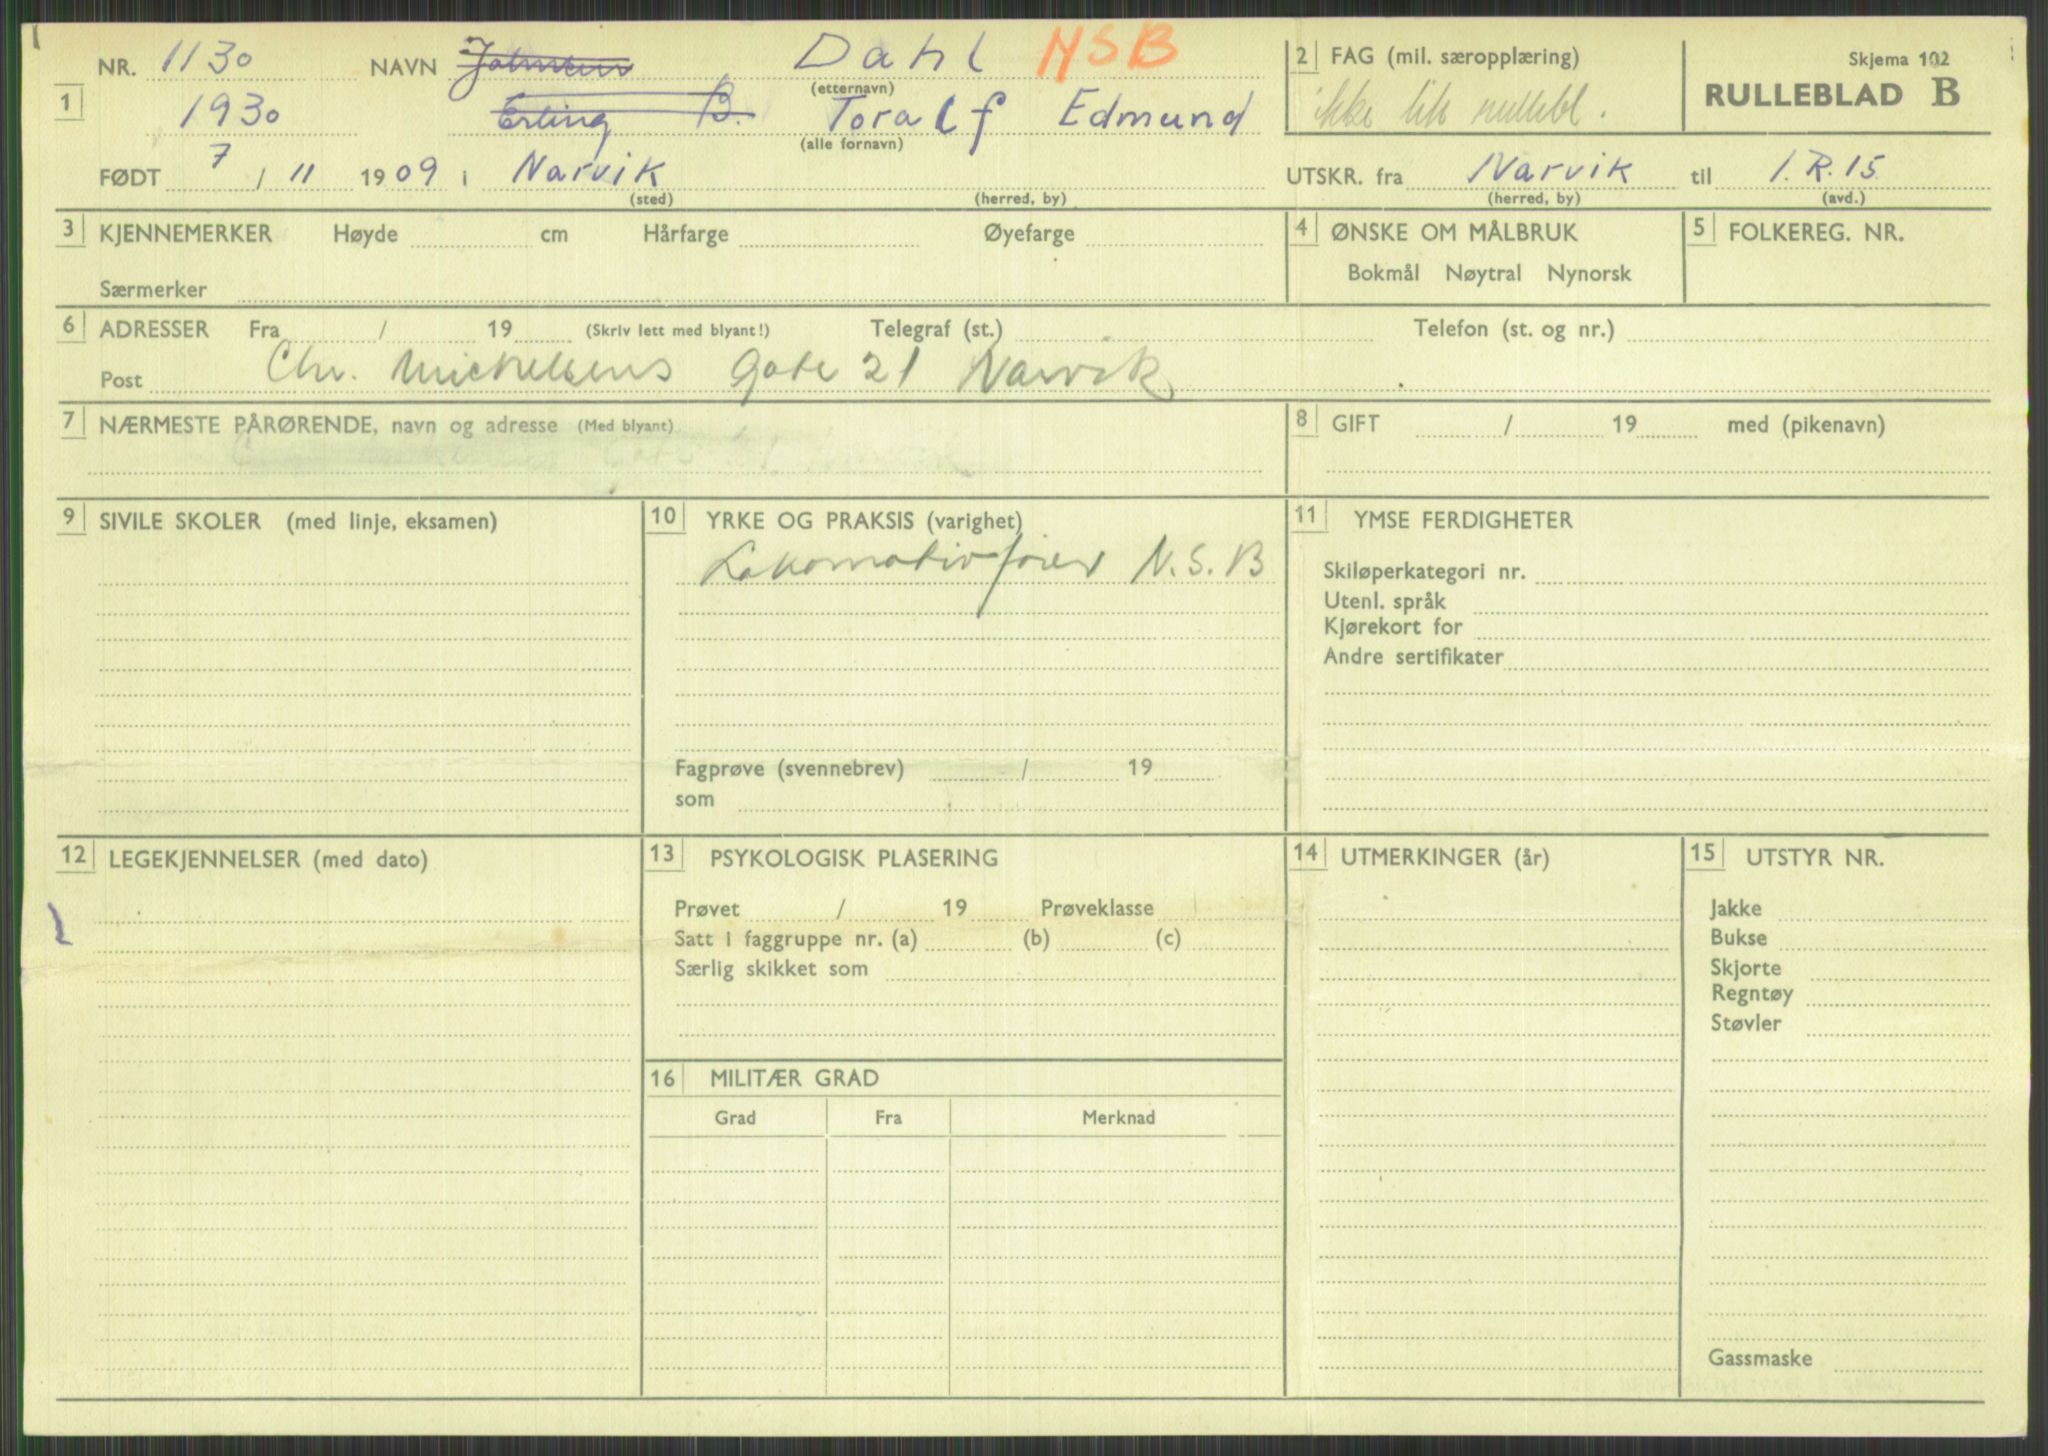 NR. 1130 NAVN Dahl NSB
(etternavn)
1 1930 Erling B. Toralf Edmund
(alle fornavn)
FØDT 7 / 11 1909 i Narvik
(sted) (herred, by)
2 FAG (mil. særopplæring)
ikke rullebl.
Skjema 102
RULLEBLAD B
UTSKR. fra Narvik til I.R.15.
(herred, by) (avd.)
3 KJENNEMERKER Høyde cm Hårfarge Øyefarge
Særmerker
4 ØNSKE OM MÅLBRUK
Bokmål Nøytral Nynorsk
5 FOLKEREG. NR.
6 ADRESSER Fra / 19 (Skriv lett med blyant!) Telegraf (st.) Telefon (st. og nr.)
Post Chr. Michelsens Gate 21 Narvik
7 NÆRMESTE PÅRØRENDE, navn og adresse (Med blyant)
8 GIFT / 19 med (pikenavn)
9 SIVILE SKOLER (med linje, eksamen)
10 YRKE OG PRAKSIS (varighet)
Lokomotivfører N.S.B
Fagprøve (svennebrev) / 19
som
11 YMSE FERDIGHETER
Skiløperkategori nr.
Utenl. språk
Kjørekort for
Andre sertifikater
12 LEGEKJENNELSER (med dato)
13 PSYKOLOGISK PLASERING
Prøvet / 19 Prøveklasse
Satt i faggruppe nr. (a) (b) (c)
Særlig skikket som
16 MILITÆR GRAD
Grad Fra Merknad
14 UTMERKINGER (år)
15 UTSTYR NR.
Jakke
Bukse
Skjorte
Regntøy
Støvler
Gassmaske